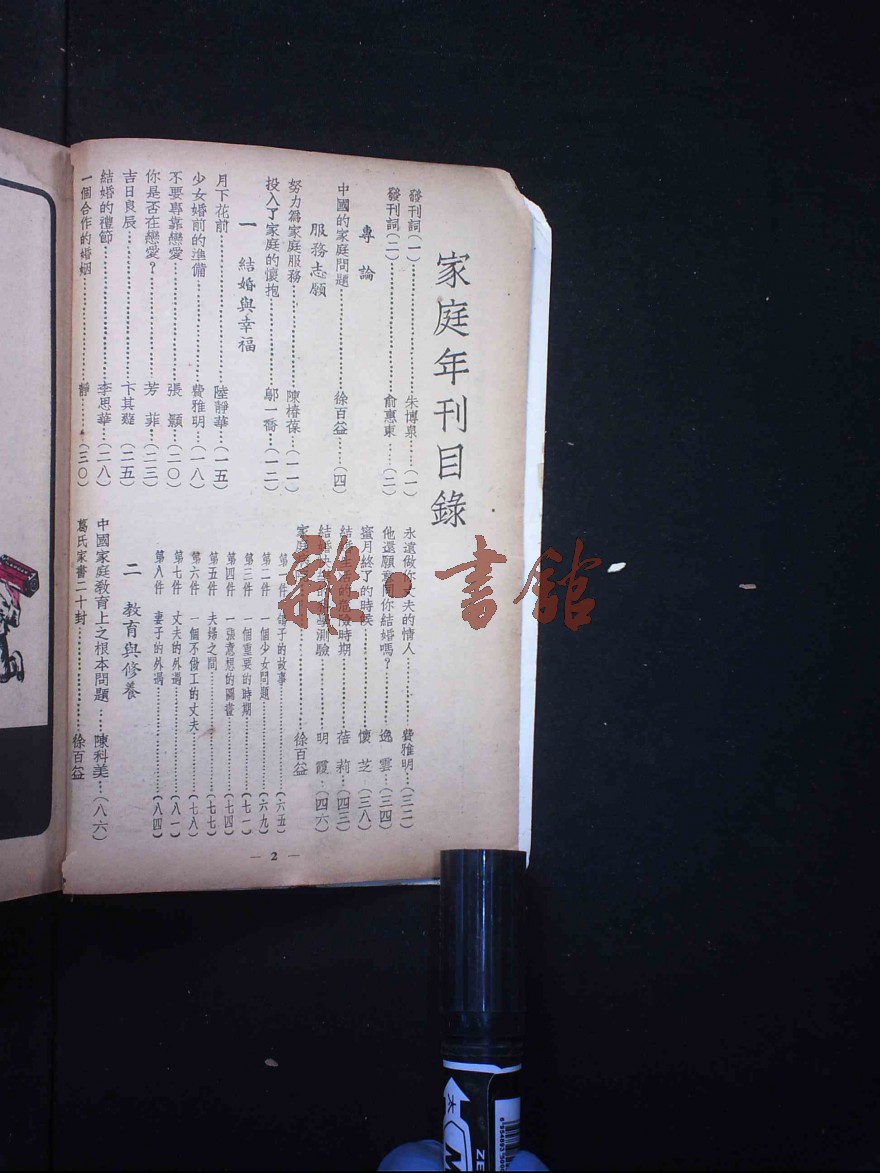 家庭年刊目錄
發刊詞(一)……朱博泉…(一)
發刊詞(二)……俞惠東…(二)
專論
中國的家庭問題……徐百益……(四)
服務志願
努力為家庭服務……陳椿葆…(一一)
投入了家庭的懷抱……鄔一喬…(一二)
一 結婚與幸福
月下花前……陸靜華…(一五)
少女婚前的準備……費雅明…(一八)
不要專靠戀愛……張 顥…(二〇)
你是否在戀愛?……芳 菲…(二三)
吉日良辰……卞其薿…(二五)
結婚的禮節……李思華…(二八)
一個合作的婚姻……靜……(三〇)
永遠做你丈夫的情人……費雅明…(三二)
他還願意同你結婚嗎?……逸 雲…(三四)
蜜月終了的時候……懷 芝…(三八)
結婚生活的危險時期……蓓 莉…(四三)
測驗……明 霞…(四六)
家庭……徐百益
第一件 子的故事……(六五)
第二件 一個少女問題……(六九)
第三件 一個重要的時期……(七一)
第四件 一張意想的圖畫……(七四)
第五件 夫婦之間……(七七)
第六件 一個不做工的丈夫……(七八)
第七件 丈夫的外遇……(八一)
第八件 妻子的外遇……(八四)
二 教育與修養
中國家庭教育上之根本問題……陳科美…(八六)
葛氏家書二十封……徐百益
— 2 —
雜·書館
ZE